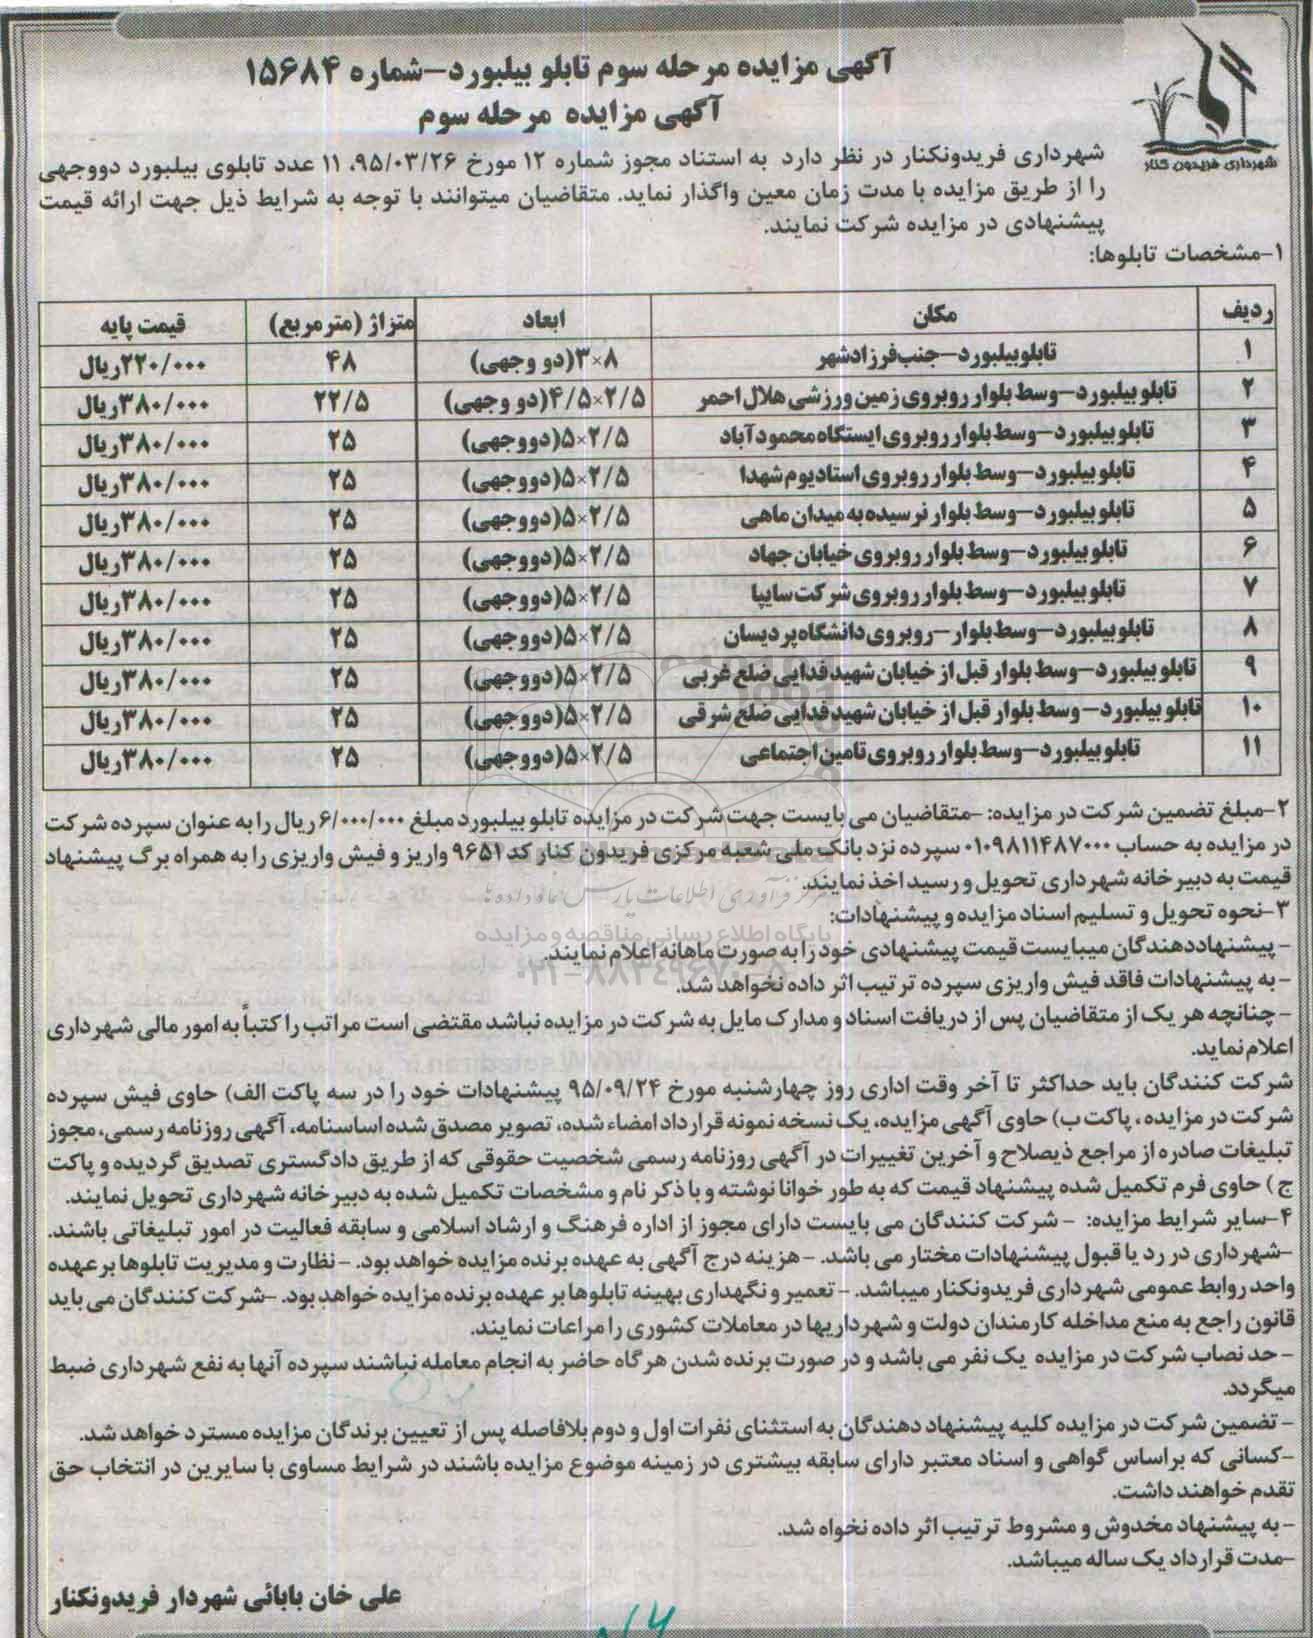 شهرداری فریدون کنار
آگهی مزایده مرحله سوم تابلو بیلبورد-شماره ۱۵۶۸۴
آگهی مزایده مرحله سوم
شهرداری فریدونکنار در نظر دارد به استناد مجوز شماره ۱۲ مورخ ۹۵/۰۳/۲۶، ۱۱ عدد تابلوی بیلبورد دووجهی
را از طریق مزایده با مدت زمان معین واگذار نماید. متقاضیان میتوانند با توجه به شرایط ذیل جهت ارائه قیمت
پیشنهادی در مزایده شرکت نمایند.
۱-مشخصات تابلوها:
ردیف مکان ابعاد متراژ (مترمربع) قیمت پایه
۱ تابلوبیلبورد-جنب فرزادشهر ۸×۳(دو وجهی) ۴۸ ۲۲۰/۰۰۰ریال
۲ تابلو بیلبورد-وسط بلوار روبروی زمین ورزشی هلال احمر ۲/۵×۴/۵(دو وجهی) ۲۲/۵ ۳۸۰/۰۰۰ریال
۳ تابلو بیلبورد-وسط بلوار روبروی ایستگاه محمودآباد ۲/۵×۵(دووجهی) ۲۵ ۳۸۰/۰۰۰ریال
۴ تابلو بیلبورد-وسط بلوار روبروی استادیوم شهدا ۲/۵×۵(دووجهی) ۲۵ ۳۸۰/۰۰۰ریال
۵ تابلو بیلبورد-وسط بلوار نرسیده به میدان ماهی ۲/۵×۵(دووجهی) ۲۵ ۳۸۰/۰۰۰ریال
۶ تابلو بیلبورد-وسط بلوار روبروی خیابان جهاد ۲/۵×۵(دووجهی) ۲۵ ۳۸۰/۰۰۰ریال
۷ تابلو بیلبورد-وسط بلوار روبروی شرکت سایپا ۲/۵×۵(دووجهی) ۲۵ ۳۸۰/۰۰۰ریال
۸ تابلو بیلبورد-وسط بلوار-روبروی دانشگاه پردیسان ۲/۵×۵(دووجهی) ۲۵ ۳۸۰/۰۰۰ریال
۹ تابلو بیلبورد-وسط بلوار قبل از خیابان شهید فدایی ضلع غربی ۲/۵×۵(دووجهی) ۲۵ ۳۸۰/۰۰۰ریال
۱۰ تابلو بیلبورد-وسط بلوار قبل از خیابان شهید فدایی ضلع شرقی ۲/۵×۵(دووجهی) ۲۵ ۳۸۰/۰۰۰ریال
۱۱ تابلو بیلبورد-وسط بلوار روبروی تامین اجتماعی ۲/۵×۵(دووجهی) ۲۵ ۳۸۰/۰۰۰ریال
۲-مبلغ تضمین شرکت در مزایده: -متقاضیان می بایست جهت شرکت در مزایده تابلو بیلبورد مبلغ ۶/۰۰۰/۰۰۰ ریال را به عنوان سپرده شرکت
در مزایده به حساب ۰۱۰۹۸۱۱۴۸۷۰۰۰ سپرده نزد بانک ملی شعبه مرکزی فریدون کنار کد ۹۶۵۱ واریز و فیش واریزی را به همراه برگ پیشنهاد
قیمت به دبیرخانه شهرداری تحویل و رسید اخذ نمایند.
مرکز فرآوری اطلاعات پارس نماد داده ها
۳-نحوه تحویل و تسلیم اسناد مزایده و پیشنهادات:
پایگاه اطلاع رسانی مناقصه و مزایده
- پیشنهاددهندگان میبایست قیمت پیشنهادی خود را به صورت ماهانه اعلام نمایند.
- به پیشنهادات فاقد فیش واریزی سپرده ترتیب اثر داده نخواهد شد.
- چنانچه هر یک از متقاضیان پس از دریافت اسناد و مدارک مایل به شرکت در مزایده نباشد مقتضی است مراتب را کتباً به امور مالی شهرداری
اعلام نماید.
شرکت کنندگان باید حداکثر تا آخر وقت اداری روز چهارشنبه مورخ ۹۵/۰۹/۲۴ پیشنهادات خود را در سه پاکت الف) حاوی فیش سپرده
شرکت در مزایده، پاکت ب) حاوی آگهی مزایده، یک نسخه نمونه قرارداد امضاء شده، تصویر مصدق شده اساسنامه، آگهی روزنامه رسمی، مجوز
تبلیغات صادره از مراجع ذیصلاح و آخرین تغییرات در آگهی روزنامه رسمی شخصیت حقوقی که از طریق دادگستری تصدیق گردیده و پاکت
ج) حاوی فرم تکمیل شده پیشنهاد قیمت که به طور خوانا نوشته و با ذکر نام و مشخصات تکمیل شده به دبیرخانه شهرداری تحویل نمایند.
۴-سایر شرایط مزایده: - شرکت کنندگان می بایست دارای مجوز از اداره فرهنگ و ارشاد اسلامی و سابقه فعالیت در امور تبلیغاتی باشند.
-شهرداری در رد یا قبول پیشنهادات مختار می باشد. -هزینه درج آگهی به عهده برنده مزایده خواهد بود. -نظارت و مدیریت تابلوها بر عهده
واحد روابط عمومی شهرداری فریدونکنار میباشد. - تعمیر و نگهداری بهینه تابلوها بر عهده برنده مزایده خواهد بود. -شرکت کنندگان می باید
قانون راجع به منع مداخله کارمندان دولت و شهرداریها در معاملات کشوری را مراعات نمایند.
- حد نصاب شرکت در مزایده یک نفر می باشد و در صورت برنده شدن هرگاه حاضر به انجام معامله نباشند سپرده آنها به نفع شهرداری ضبط
میگردد.
- تضمین شرکت در مزایده کلیه پیشنهاد دهندگان به استثنای نفرات اول و دوم بلافاصله پس از تعیین برندگان مزایده مسترد خواهد شد.
-کسانی که براساس گواهی و اسناد معتبر دارای سابقه بیشتری در زمینه موضوع مزایده باشند در شرایط مساوی با سایرین در انتخاب حق
تقدم خواهند داشت.
- به پیشنهاد مخدوش و مشروط ترتیب اثر داده نخواه شد.
-مدت قرارداد یک ساله میباشد.
علی خان بابائی شهردار فریدونکنار